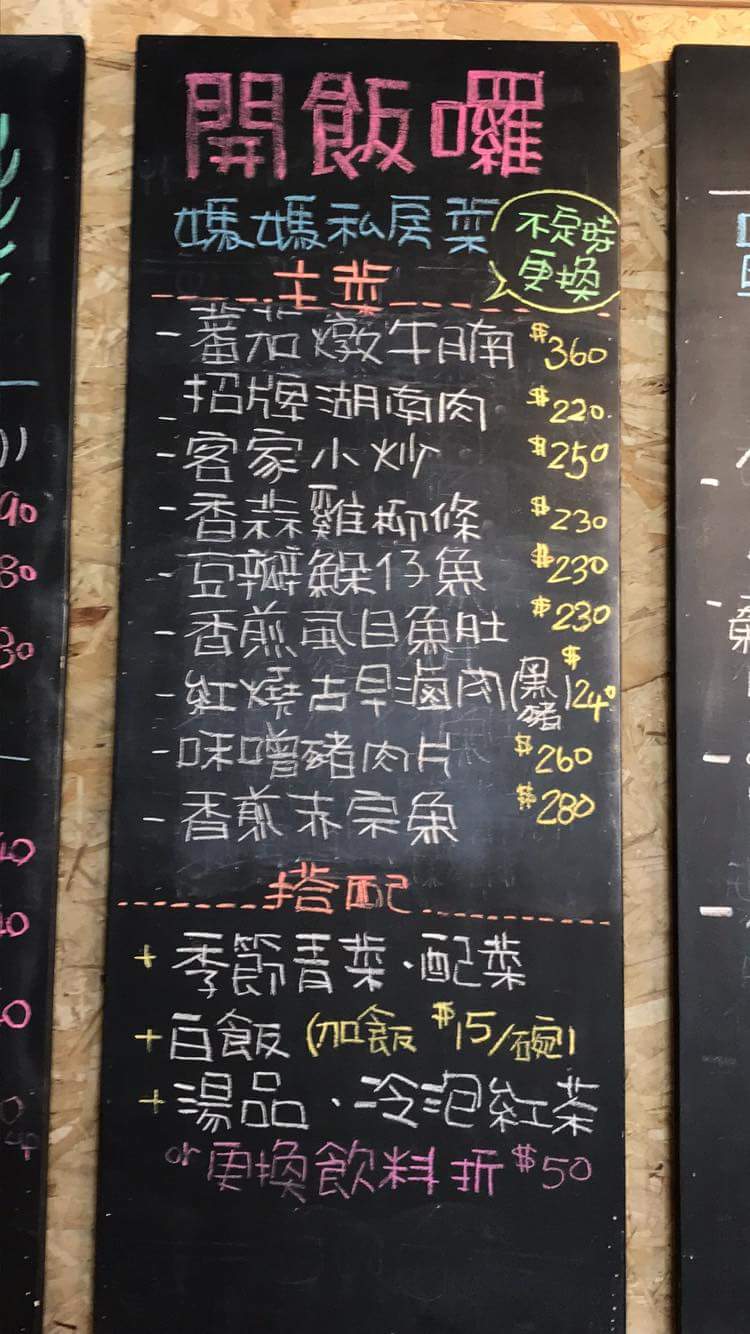 開飯囉
媽媽私房菜
不定時
更換
主菜
- 蕃茄燉牛腩 $360
- 招牌湖南肉 $220
- 客家小炒 $250
- 香蒜雞柳條 $230
- 豆瓣鯚仔魚 $230
- 香煎虱目魚肚 $230
- 紅燒古早滷肉(黑豬) $240
- 味噌豬肉片 $260
- 香煎赤宗魚 $280
搭配
+ 季節青菜·配菜
+ 白飯 (加飯 $15/碗)
+ 湯品·冷泡紅茶
or 更換飲料折 $50
90
80
30